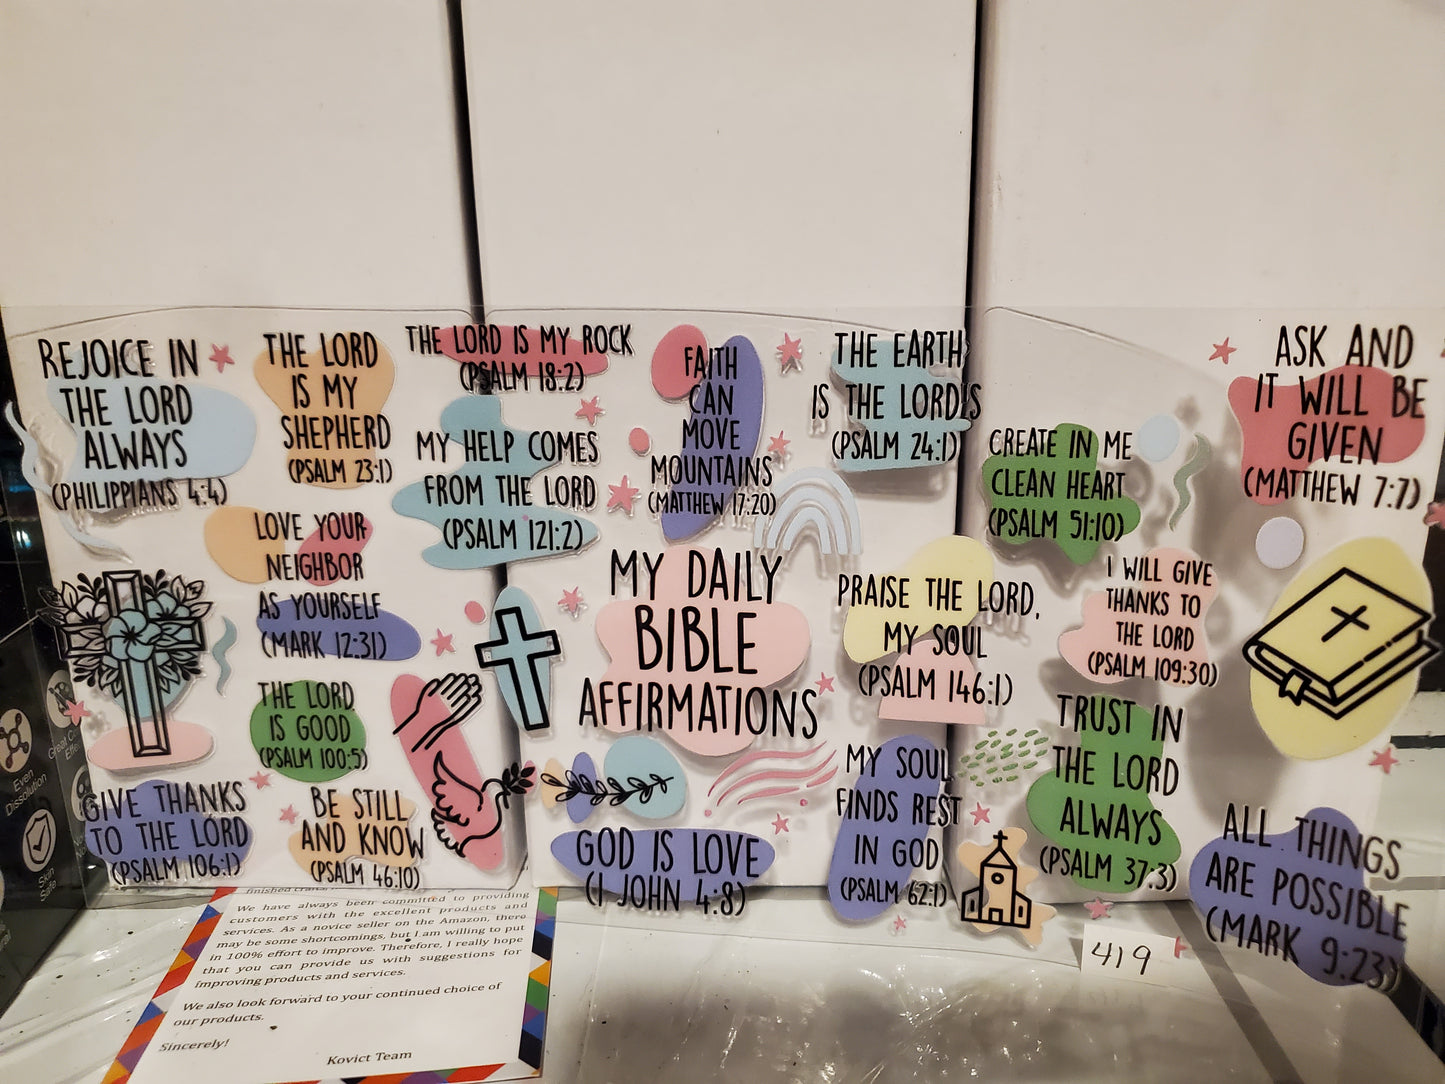 REJOICE IN
THE LORD
ALWAYS
(PHILIPPIANS 4:4)
THE LORD
IS MY
SHEPHERD
(PSALM 23:1)
THE LORD IS MY ROCK
(PSALM 18:2)
MY HELP COMES
FROM THE LORD
(PSALM 121:2)
FAITH
CAN
MOVE
MOUNTAINS
(MATTHEW 17:20)
THE EARTH
IS THE LORD'S
(PSALM 24:1)
CREATE IN ME
CLEAN HEART
(PSALM 51:10)
ASK AND
IT WILL BE
GIVEN
(MATTHEW 7:7)
LOVE YOUR
NEIGHBOR
AS YOURSELF
(MARK 12:31)
MY DAILY
BIBLE
AFFIRMATIONS
PRAISE THE LORD,
MY SOUL
(PSALM 146:1)
I WILL GIVE
THANKS TO
THE LORD
(PSALM 109:30)
THE LORD
IS GOOD
(PSALM 100:5)
GIVE THANKS
TO THE LORD
(PSALM 106:1)
BE STILL
AND KNOW
(PSALM 46:10)
GOD IS LOVE
(1 JOHN 4:8)
MY SOUL
FINDS REST
IN GOD
(PSALM 62:1)
TRUST IN
THE LORD
ALWAYS
(PSALM 37:3)
ALL THINGS
ARE POSSIBLE
(MARK 9:23)
419
Even
Dissolution
Skin
Safe
finished
We have always been committed to providing
customers with the excellent products and
services. As a novice seller on the Amazon, there
may be some shortcomings, but I am willing to put
in 100% effort to improve. Therefore, I really hope
that you can provide us with suggestions for
improving products and services.
We also look forward to your continued choice of
our products.
Sincerely!
Kovict Team